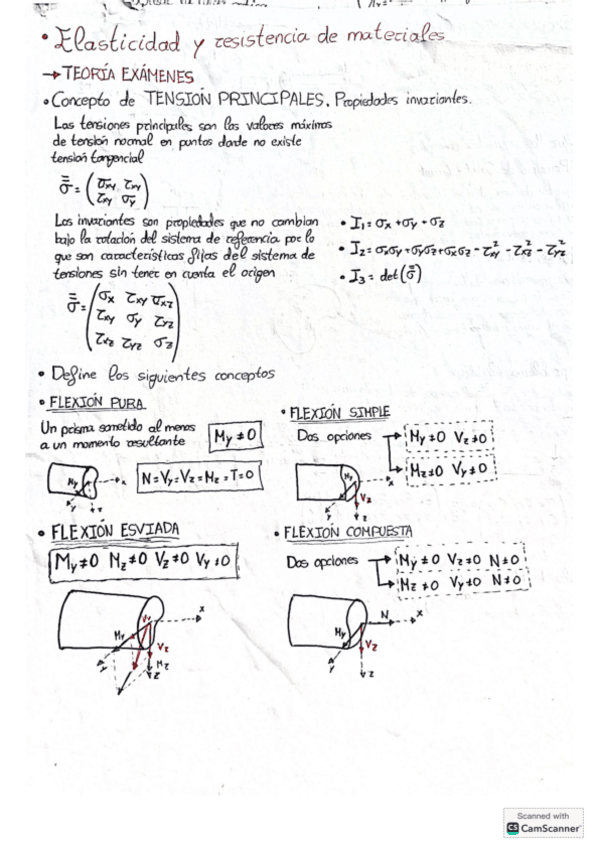 • Elasticidad y resistencia de materiales
→ TEORÍA EXÁMENES
• Concepto de TENSIÓN PRINCIPALES. Propiedades invariantes.
Las tensiones principales son los valores máximos
de tensión normal en puntos donde no existe
tensión tangencial
σ̿ = (σxy τxy
τxy σy)
Los invariantes son propiedades que no cambian
bajo la rotación del sistema de referencia por lo
que son características fijas del sistema de
tensiones sin tener en cuenta el origen
• I₁ = σx + σy + σz
• I₂ = σxσy + σyσz + σxσz - τxy² - τxz² - τyz²
• I₃ = det(σ̿)
σ̿ = (σx τxy σxz
τxy σy τyz
τxz τyz σz)
• Define los siguientes conceptos
• FLEXIÓN PURA
Un prisma sometido al menos
a un momento resultante
My ≠ 0
N = Vy = Vz = Mz = T = 0
My x y z
• FLEXIÓN SIMPLE
Dos opciones → My ≠ 0 Vz ≠ 0
→ Mz ≠ 0 Vy ≠ 0
My Vz x y z
• FLEXIÓN ESVIADA
My ≠ 0 Mz ≠ 0 Vz ≠ 0 Vy ≠ 0
My Vy Vz Mz x y z
• FLEXIÓN COMPUESTA
Dos opciones → My ≠ 0 Vz ≠ 0 N ≠ 0
→ Mz ≠ 0 Vy ≠ 0 N ≠ 0
N My Vz x y z
Scanned with
CS CamScanner